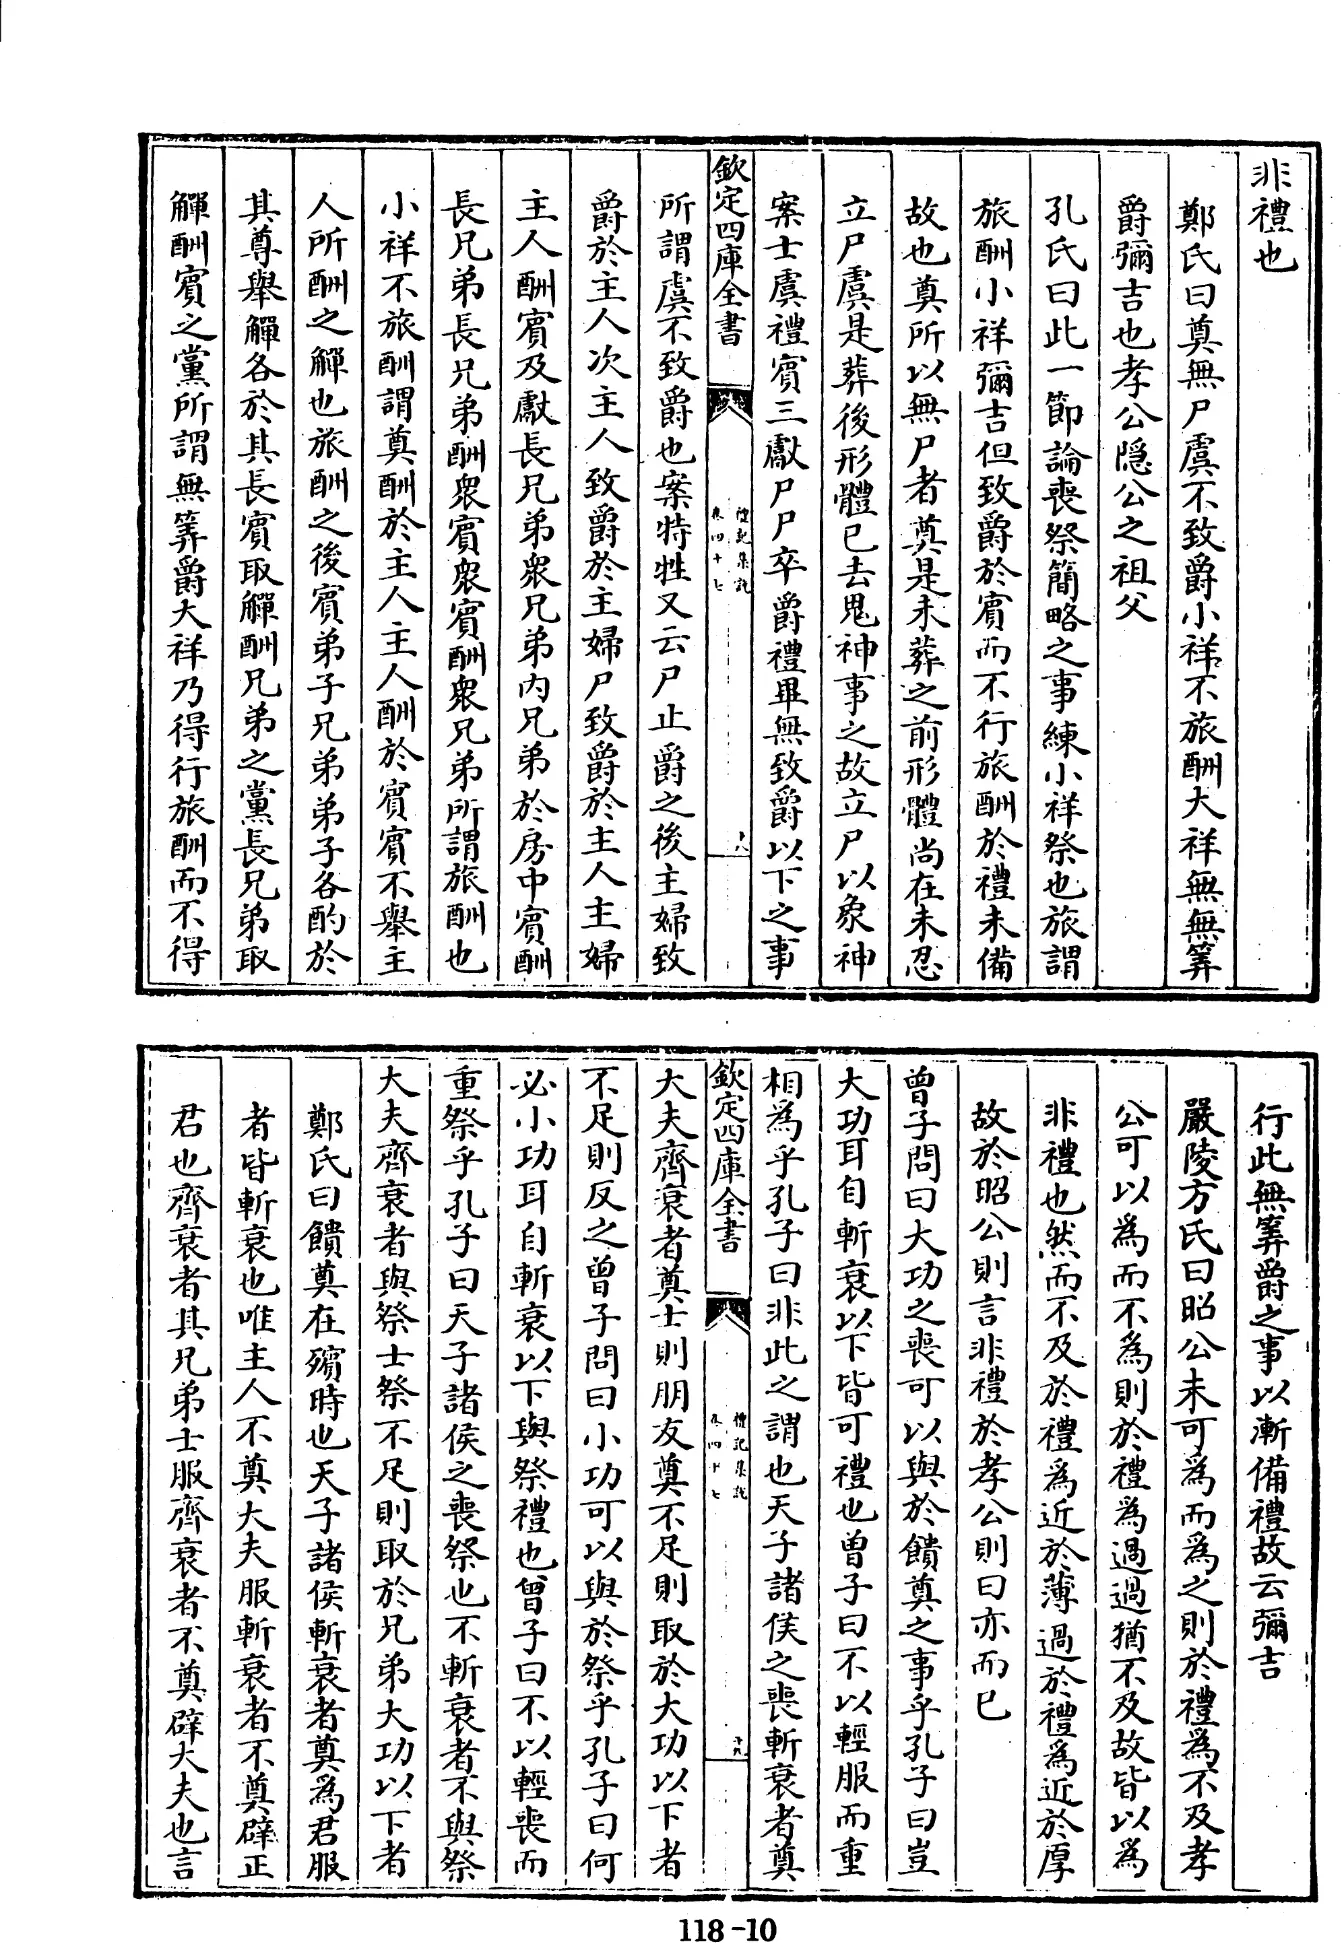 非禮也
鄭氏曰奠無尸虞不致爵小祥不旅酬大祥無無筭
爵彌吉也孝公隱公之祖父
孔氏曰此一節論喪祭簡略之事練小祥祭也旅謂
旅酬小祥彌吉但致爵於賓而不行旅酬於禮未備
故也奠所以無尸者奠是未葬之前形體尚在未忍
立尸虞是葬後形體已去鬼神事之故立尸以象神
案士虞禮賓三獻尸尸卒爵禮畢無致爵以下之事
欽定四庫全書
禮記集說
卷四十七
十八
所謂虞不致爵也案特牲又云尸止爵之後主婦致
爵於主人次主人致爵於主婦尸致爵於主人主婦
主人酬賓及獻長兄弟衆兄弟内兄弟於房中賓酬
長兄弟長兄弟酬衆賓衆賓酬衆兄弟所謂旅酬也
小祥不旅酬謂奠酬於主人主人酬於賓賓不舉主
人所酬之觶也旅酬之後賓弟子兄弟弟子各酌於
其尊舉觶各於其長賓取觶酬兄弟之黨長兄弟取
觶酬賓之黨所謂無筭爵大祥乃得行旅酬而不得
行此無筭爵之事以漸備禮故云彌吉
嚴陵方氏曰昭公未可為而為之則於禮為不及孝
公可以為而不為則於禮為過過猶不及故皆以為
非禮也然而不及於禮為近於薄過於禮為近於厚
故於昭公則言非禮於孝公則曰亦而已
曾子問曰大功之喪可以與於饋奠之事乎孔子曰豈
大功耳自斬衰以下皆可禮也曾子曰不以輕服而重
相為乎孔子曰非此之謂也天子諸侯之喪斬衰者奠
欽定四庫全書
禮記集說
卷四十七
十九
大夫齊衰者奠士則朋友奠不足則取於大功以下者
不足則反之曾子問曰小功可以與於祭乎孔子曰何
必小功耳自斬衰以下與祭禮也曾子曰不以輕喪而
重祭乎孔子曰天子諸侯之喪祭也不斬衰者不與祭
大夫齊衰者與祭士祭不足則取於兄弟大功以下者
鄭氏曰饋奠在殯時也天子諸侯斬衰者奠為君服
者皆斬衰也唯主人不奠大夫服斬衰者不奠辟正
君也齊衰者其兄弟士服齊衰者不奠辟大夫也言
118-10